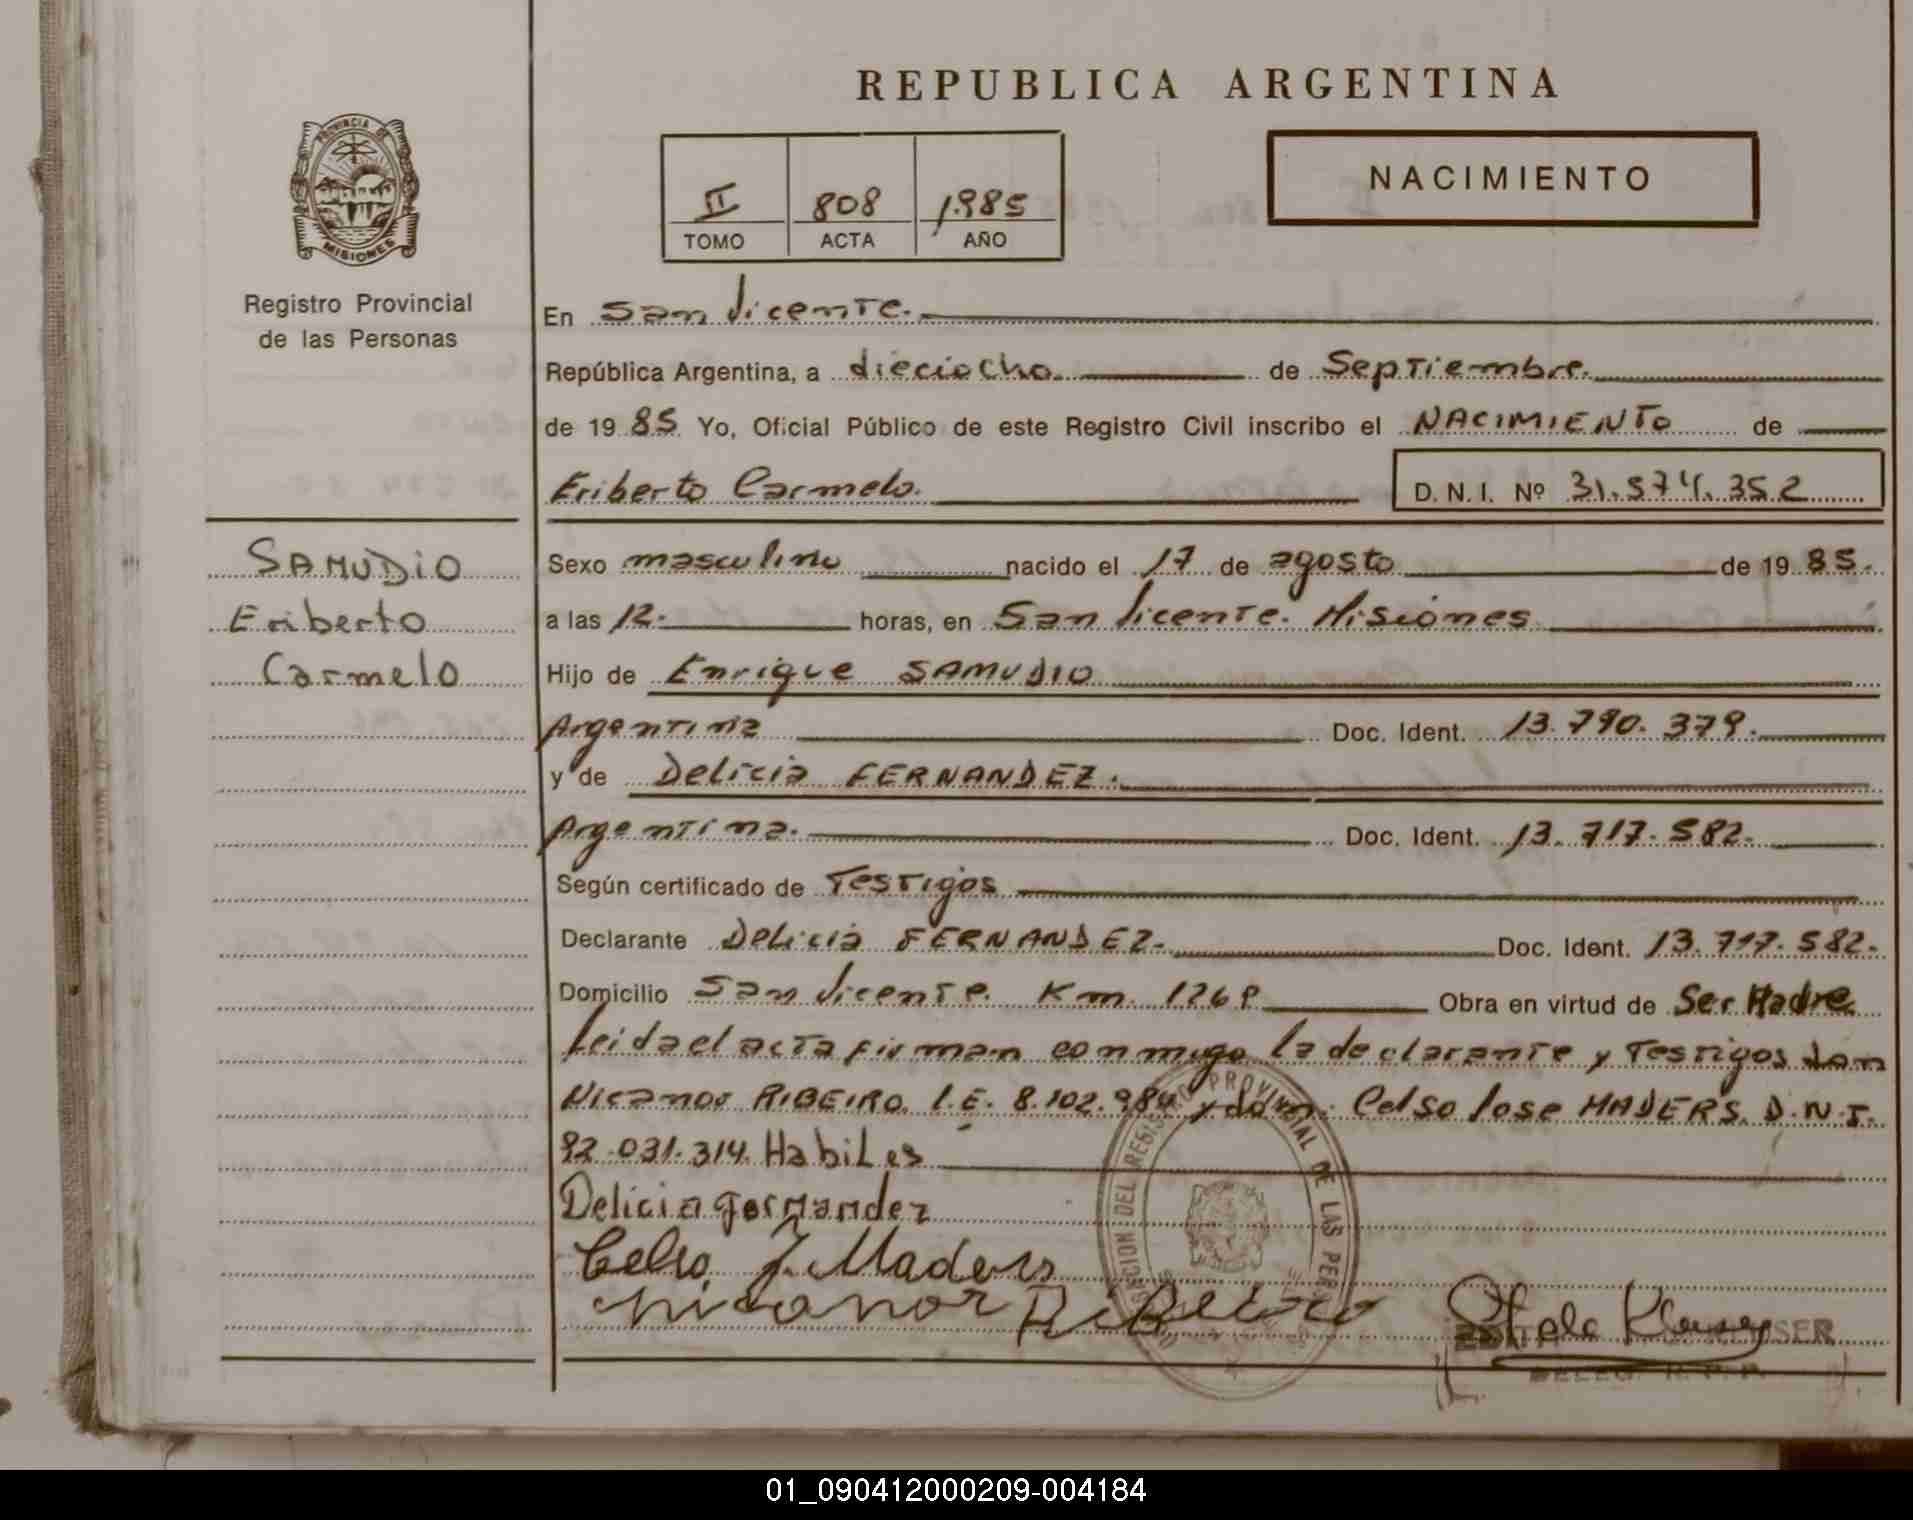 REPUBLICA ARGENTINA
PROVINCIA DE
MISIONES
Registro Provincial
de las Personas
II 808 1985
TOMO ACTA AÑO
NACIMIENTO
En San Vicente.
República Argentina, a dieciocho de Septiembre.
de 19 85 Yo, Oficial Público de este Registro Civil inscribo el NACIMIENTO de
Eriberto Carmelo. D. N. I. Nº 31.574.352
SAMUDIO
Eriberto
Carmelo
Sexo masculino nacido el 17 de agosto de 19 85.
a las 12. horas, en San Vicente. Misiones
Hijo de Enrique SAMUDIO
Argentina Doc. Ident. 13.790.379.
y de Delicia FERNANDEZ.
Argentina. Doc. Ident. 13.717.582.
Según certificado de Testigos
Declarante Delicia FERNANDEZ. Doc. Ident. 13.717.582.
Domicilio San Vicente. Km. 1269 Obra en virtud de Ser Madre
Leida el acta firman conmigo la declarante y Testigos don
Nicanor RIBEIRO. L.E. 8.102.984 y don: Celso Jose MADERS. D.N.I.
92.031.314. Habiles
Delicia fernandez
Celso J. Maders
nicanor Ribeiro
DEL REGISTRO PROVINCIAL DE LAS PER
DELEG. R. P. P.
01_090412000209-004184